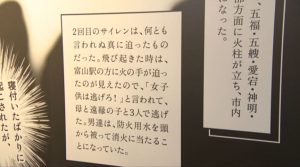 、五福・五艘・愛宕・神明・
部方面に火柱が立ち、市内
になった。
2回目のサイレンは、何とも
言われぬ真に迫ったもの
だった。飛び起きた時は、
富山駅の方に火の手が迫っ
たのが見えたので、「女子
供は逃げろ!」と言われて、
母と遠縁の子と3人で逃げ
た。男達は、防火用水を頭
から被って消火に当たるこ
とになっていた。
寝付いたばかりに
起こされたが、